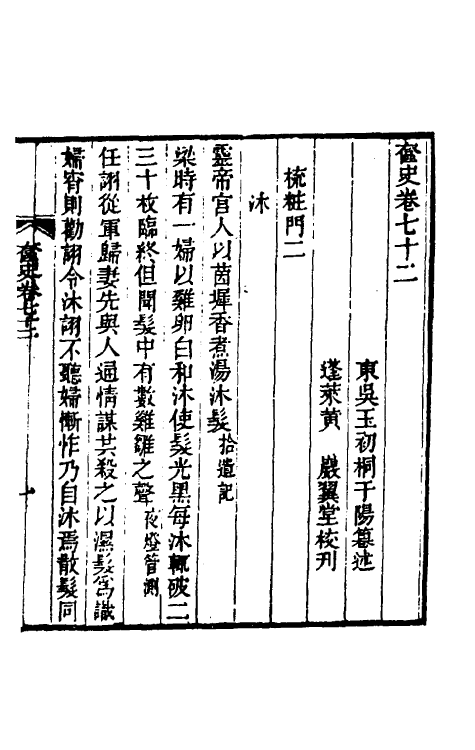 奩史卷七十二
東吳王初桐于陽纂述
蓬萊黃　巖翼堂校刊
梳粧門二
沐
靈帝宫人以茵墀香煮湯沐髮拾遺記
梁時有一婦以雞卵白和沐使髮光黑每沐輒破二
三十枚臨終但聞髮中有數雞雛之聲夜燈管測
任詡從軍歸妻先與人通情謀共殺之以濕髮爲識
婦宵則勸詡令沐詡不聽婦慚怍乃自沐焉散髮同
奩史卷七十二
一